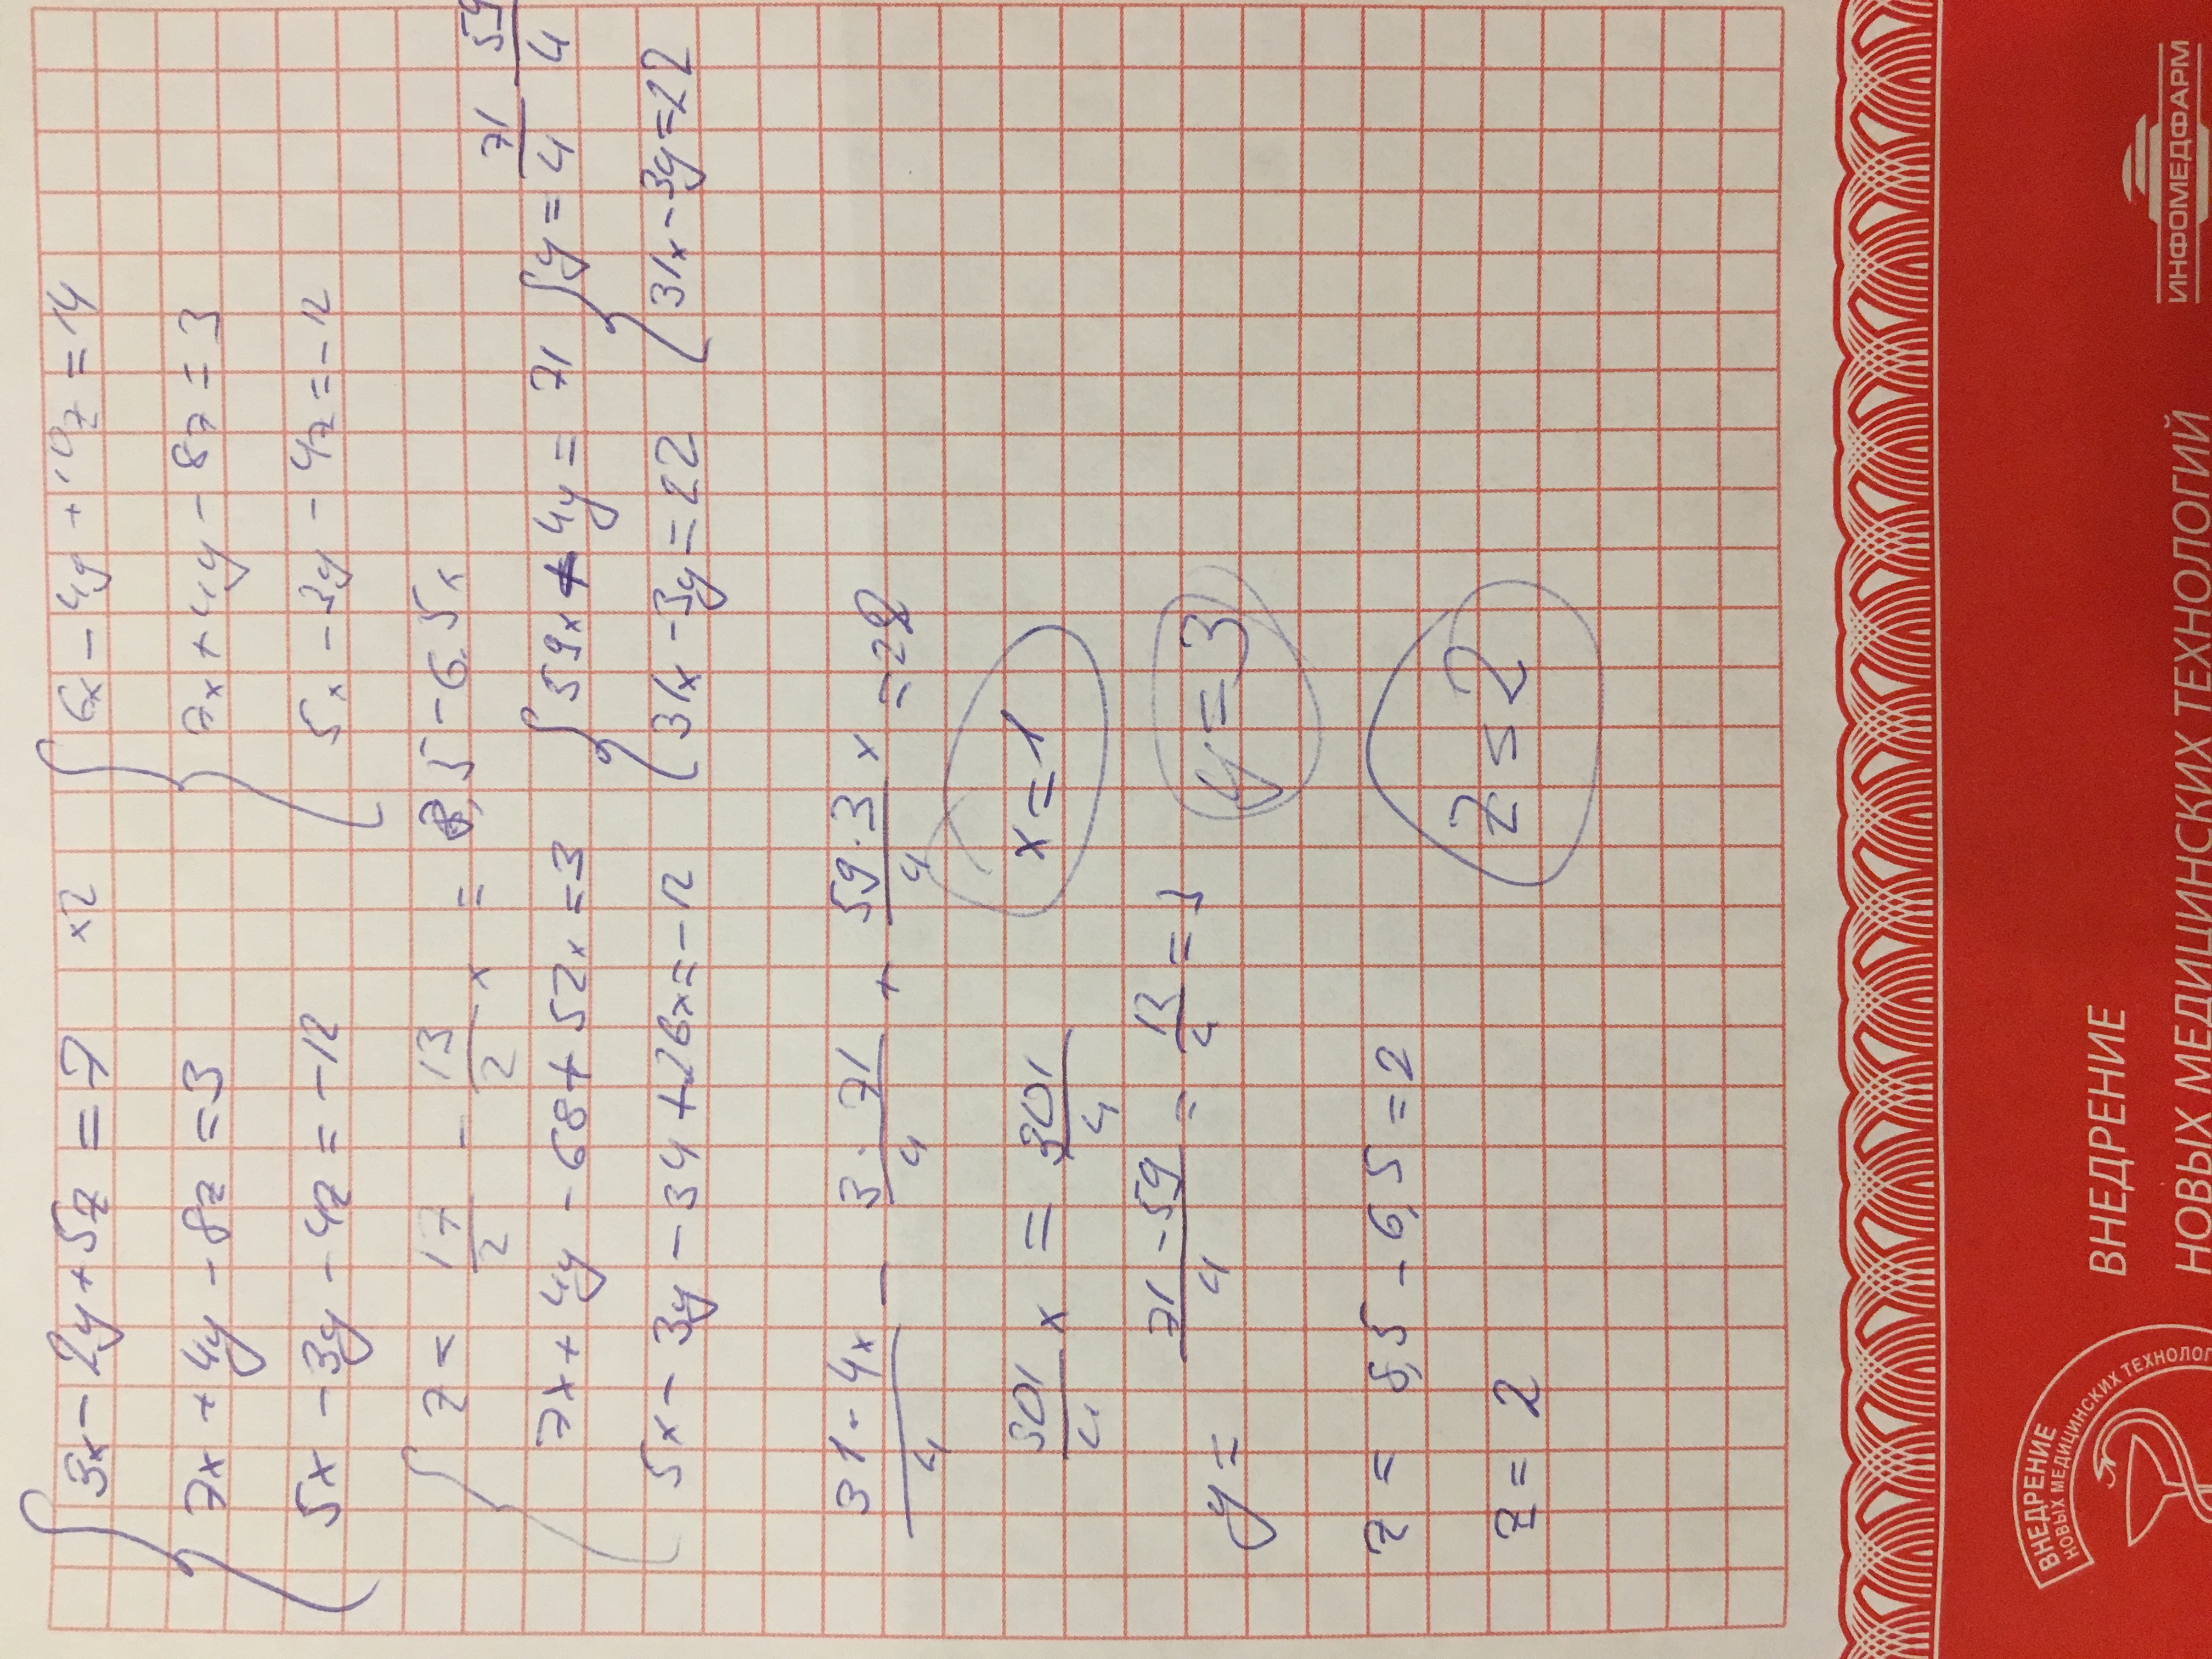 3x - 2y + 5z = 7 ×2
7x + 4y - 8z = 3
5x - 3y - 4z = -12
6x - 4y + 10z = 14
7x + 4y - 8z = 3
5x - 3y - 4z = -12
z = 17/2 - 13/2 x = 8,5 - 6.5x
7x + 4y - 68 + 52x = 3
5x - 3y - 34 + 26x = -12
59x + 4y = 71
31x - 3y = 22
y = 71/4 - 59/4
31x - 3y = 22
31·4x/4 - 3·71/4 + 59·3/4 x = 22
301/4 x = 301/4
x = 1
y = 71-59/4 = 12/4 = 3
y = 3
z = 8,5 - 6,5 = 2
z = 2
z = 2
ВНЕДРЕНИЕ
НОВЫХ МЕДИЦИНСКИХ ТЕХНОЛОГ
ВНЕДРЕНИЕ
НОВЫХ МЕДИЦИНСКИХ ТЕХНОЛОГИЙ
ИНФОМЕДФАРМ